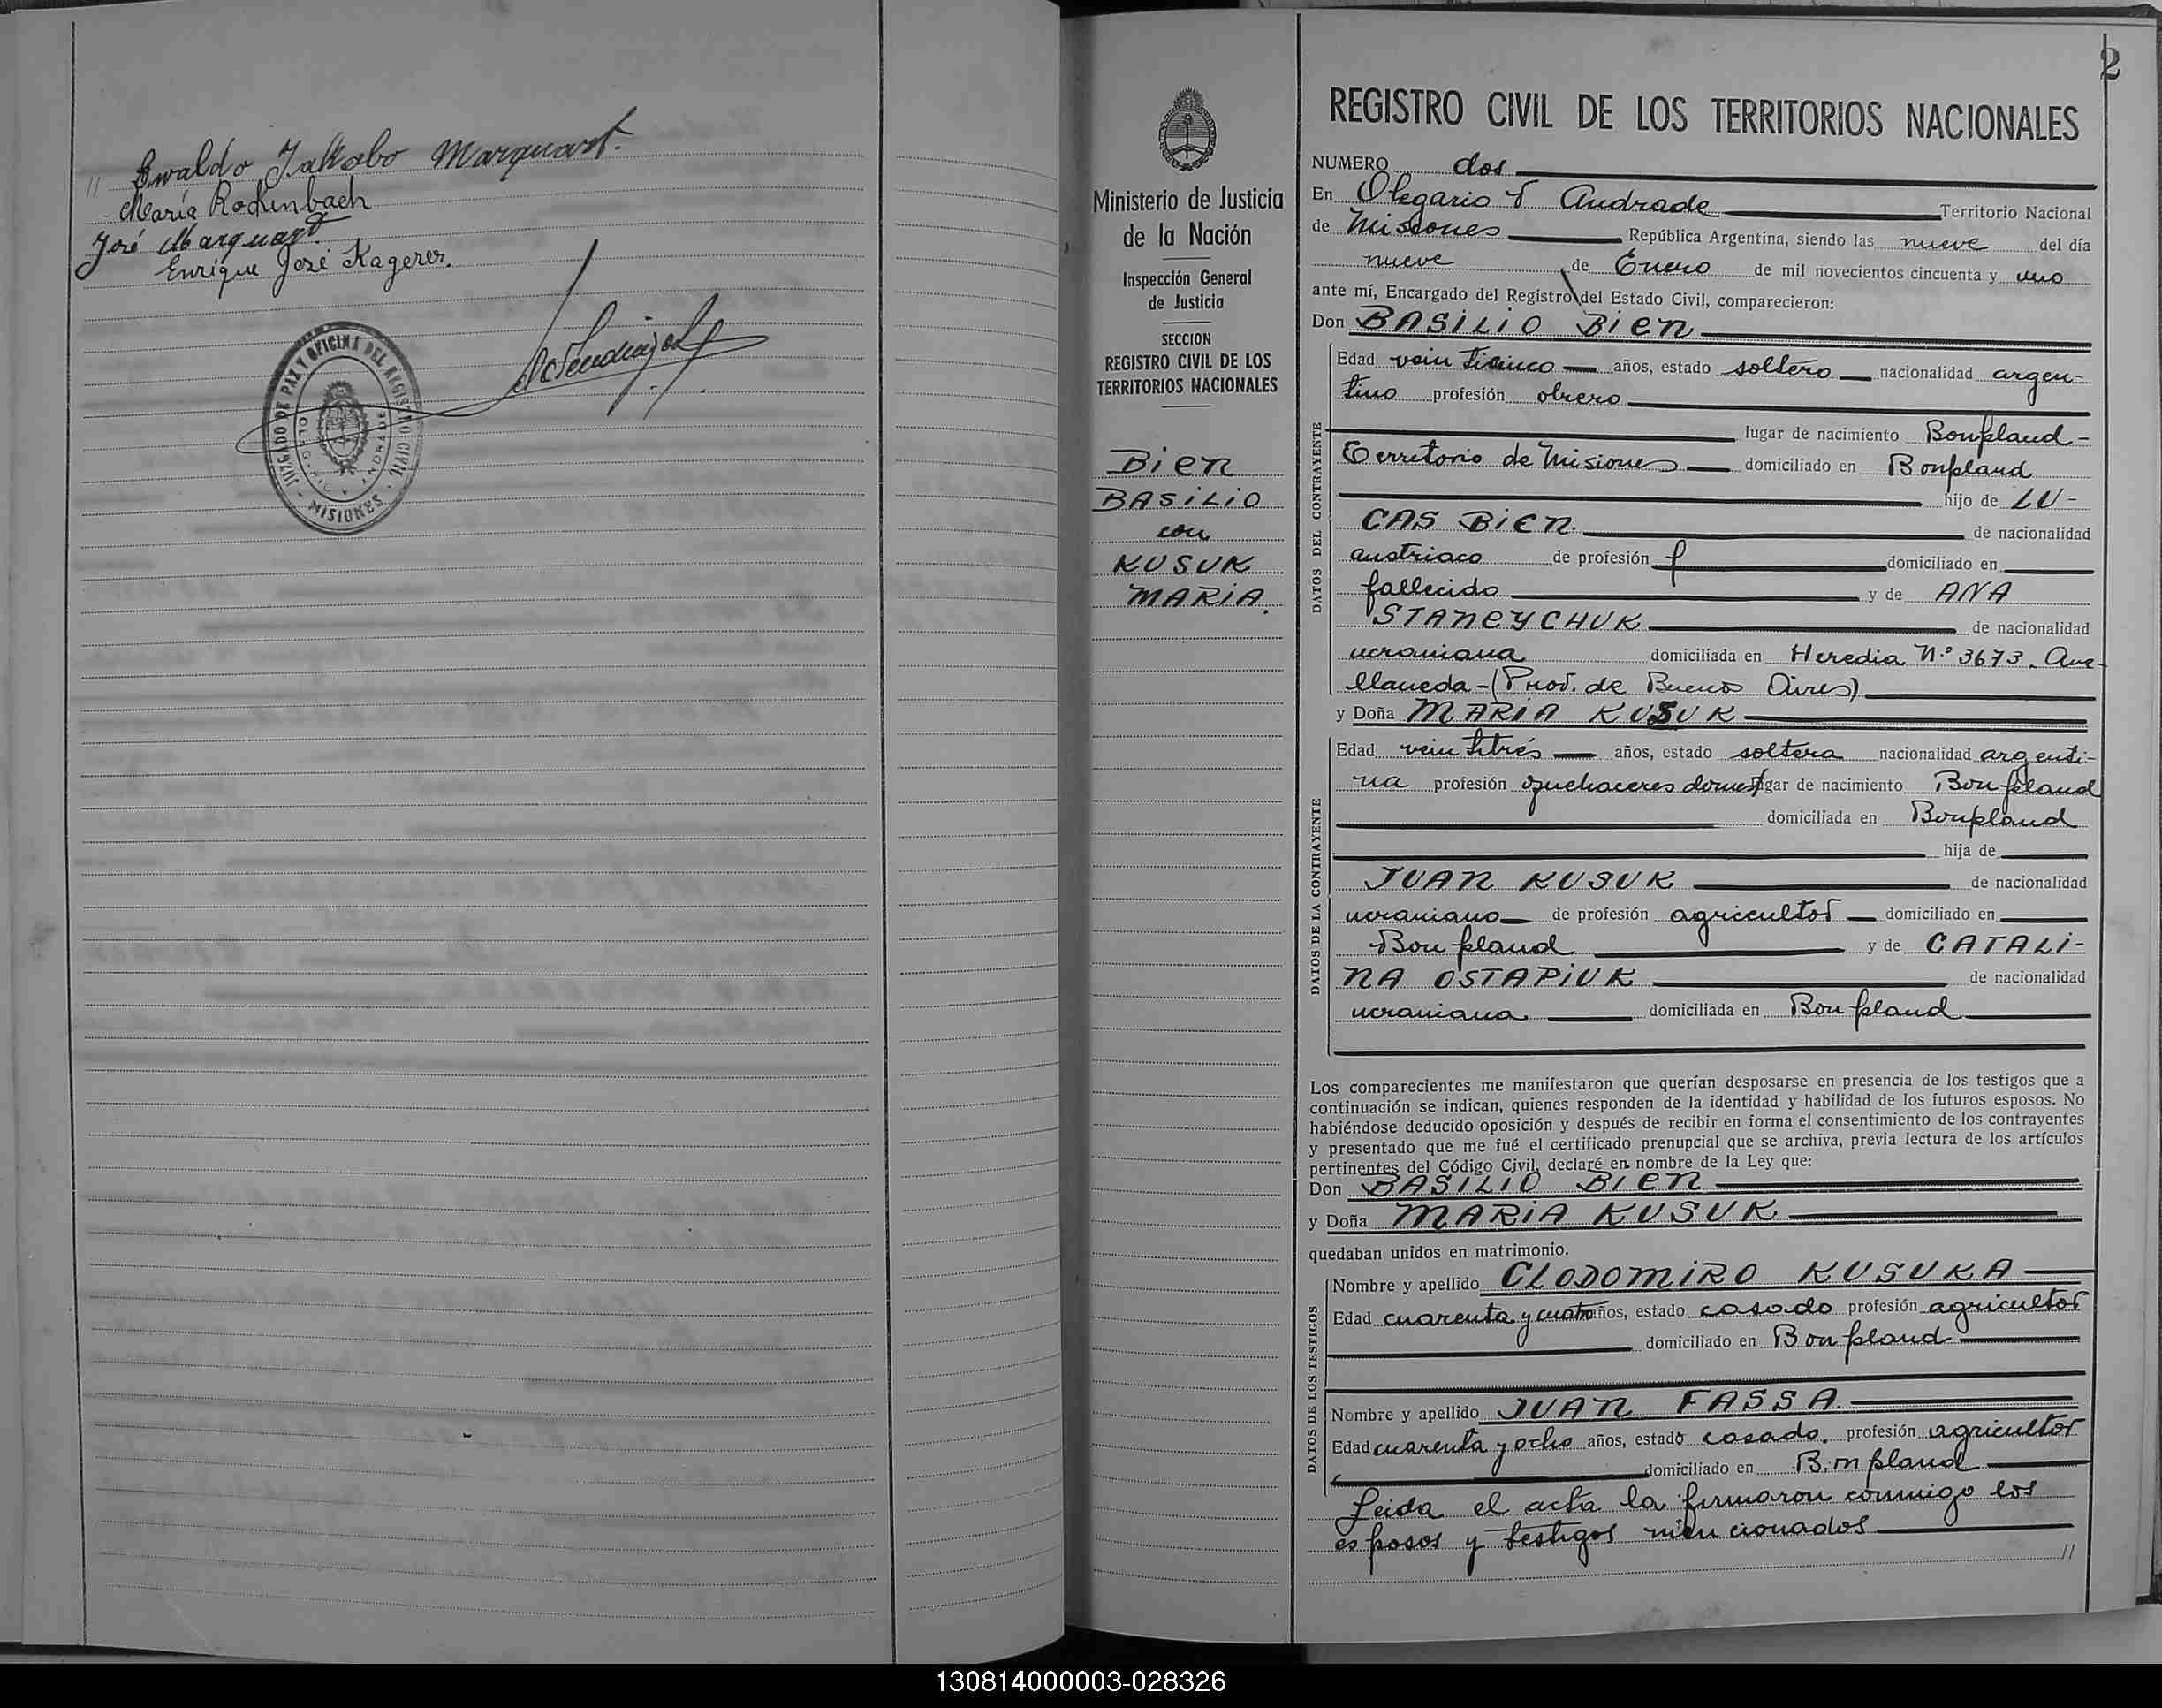 " Ewaldo Jakobo Marquart.
María Rodenbach
José Marquart.
Enrique José Kagerer.
JUZGADO DE PAZ Y OFICINA DEL REGISTRO CIVIL
- MISIONES -
Ministerio de Justicia
de la Nación
Inspección General
de Justicia
SECCION
REGISTRO CIVIL DE LOS
TERRITORIOS NACIONALES
Bien
BASiLiO
con
KUSUK
MARiA.
2
REGISTRO CIVIL DE LOS TERRITORIOS NACIONALES
NUMERO dos
En Olegario V Andrade Territorio Nacional
de Misiones República Argentina, siendo las nueve del día
nueve de Enero de mil novecientos cincuenta y uno
ante mí, Encargado del Registro del Estado Civil, comparecieron:
Don BASiLiO Bien
DATOS DEL CONTRAYENTE
Edad veinticinco años, estado soltero nacionalidad argen-
tino profesión obrero
lugar de nacimiento Bonpland -
Territorio de Misiones domiciliado en Bonpland
hijo de LU-
CAS BiEn. de nacionalidad
austriaco de profesión domiciliado en
fallecido y de ANA
STANEYCHUK de nacionalidad
ucraniana domiciliada en Heredia Nº 3673. Ave-
llaneda - (Prov. de Buenos Aires)
y Doña MARiA KUSUK
DATOS DE LA CONTRAYENTE
Edad veintitrés años, estado soltera nacionalidad argenti-
na profesión quehaceres domest lugar de nacimiento Bonpland
domiciliada en Bonpland
hija de
JUAN KUSUK de nacionalidad
ucraniano de profesión agricultor domiciliado en
Bonpland y de CATALi-
NA OSTAPiUK de nacionalidad
ucraniana domiciliada en Bonpland
Los comparecientes me manifestaron que querían desposarse en presencia de los testigos que a
continuación se indican, quienes responden de la identidad y habilidad de los futuros esposos. No
habiéndose deducido oposición y después de recibir en forma el consentimiento de los contrayentes
y presentado que me fué el certificado prenupcial que se archiva, previa lectura de los artículos
pertinentes del Código Civil, declaré en nombre de la Ley que:
Don BASiLiO BiEn
y Doña MARiA KUSUK
quedaban unidos en matrimonio.
DATOS DE LOS TESTIGOS
Nombre y apellido CLODOMiRO KUSUKA
Edad cuarenta y cuatro años, estado casado profesión agricultor
domiciliado en Bonpland
Nombre y apellido JUAN FASSA.
Edad cuarenta y ocho años, estado casado. profesión agricultor
domiciliado en Bonpland
Leida el acta la firmaron conmigo los
esposos y testigos mencionados
//
130814000003-028326